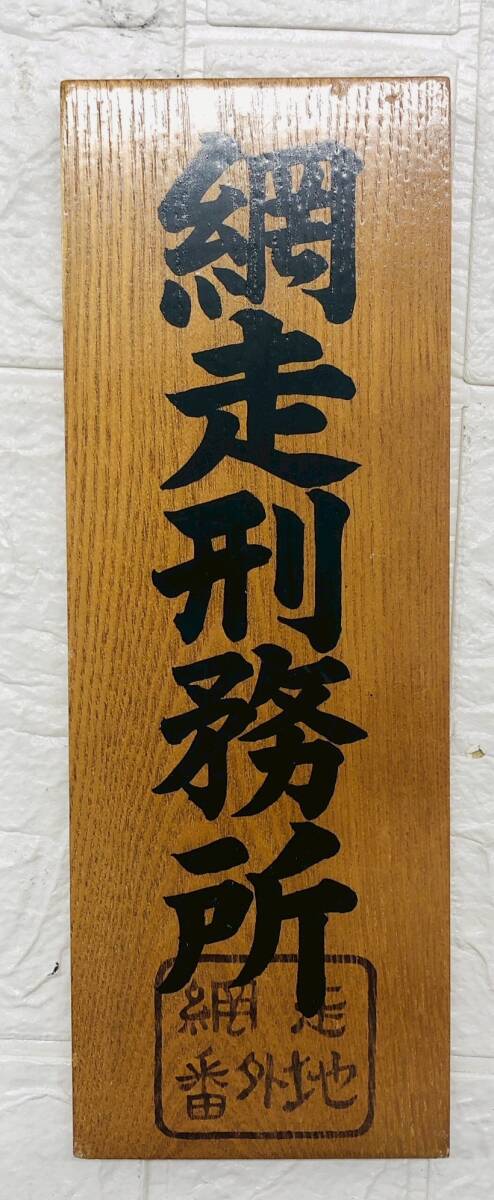 網走刑務所
網走
番外地